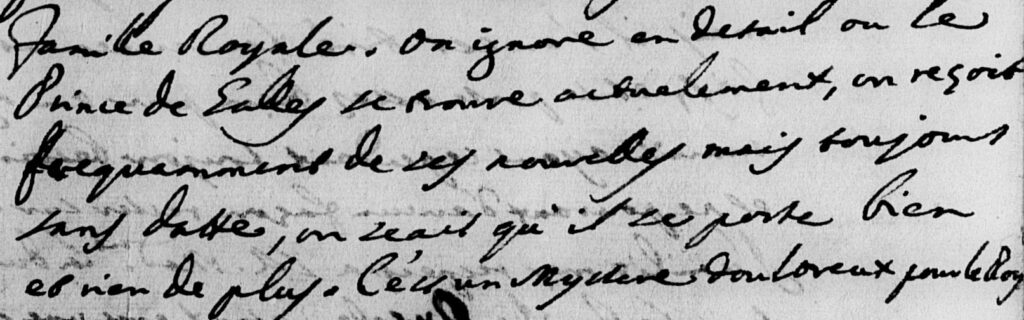 famille Royale. On ignore en detail ou le
Prince de Galles se trouve actuelement, on reçoit
frequamment de ses nouvelles mais toujours
sans datte, on scait qu'il se porte bien
et rien de plus. C'est un Mystere douloureux pour le Roy